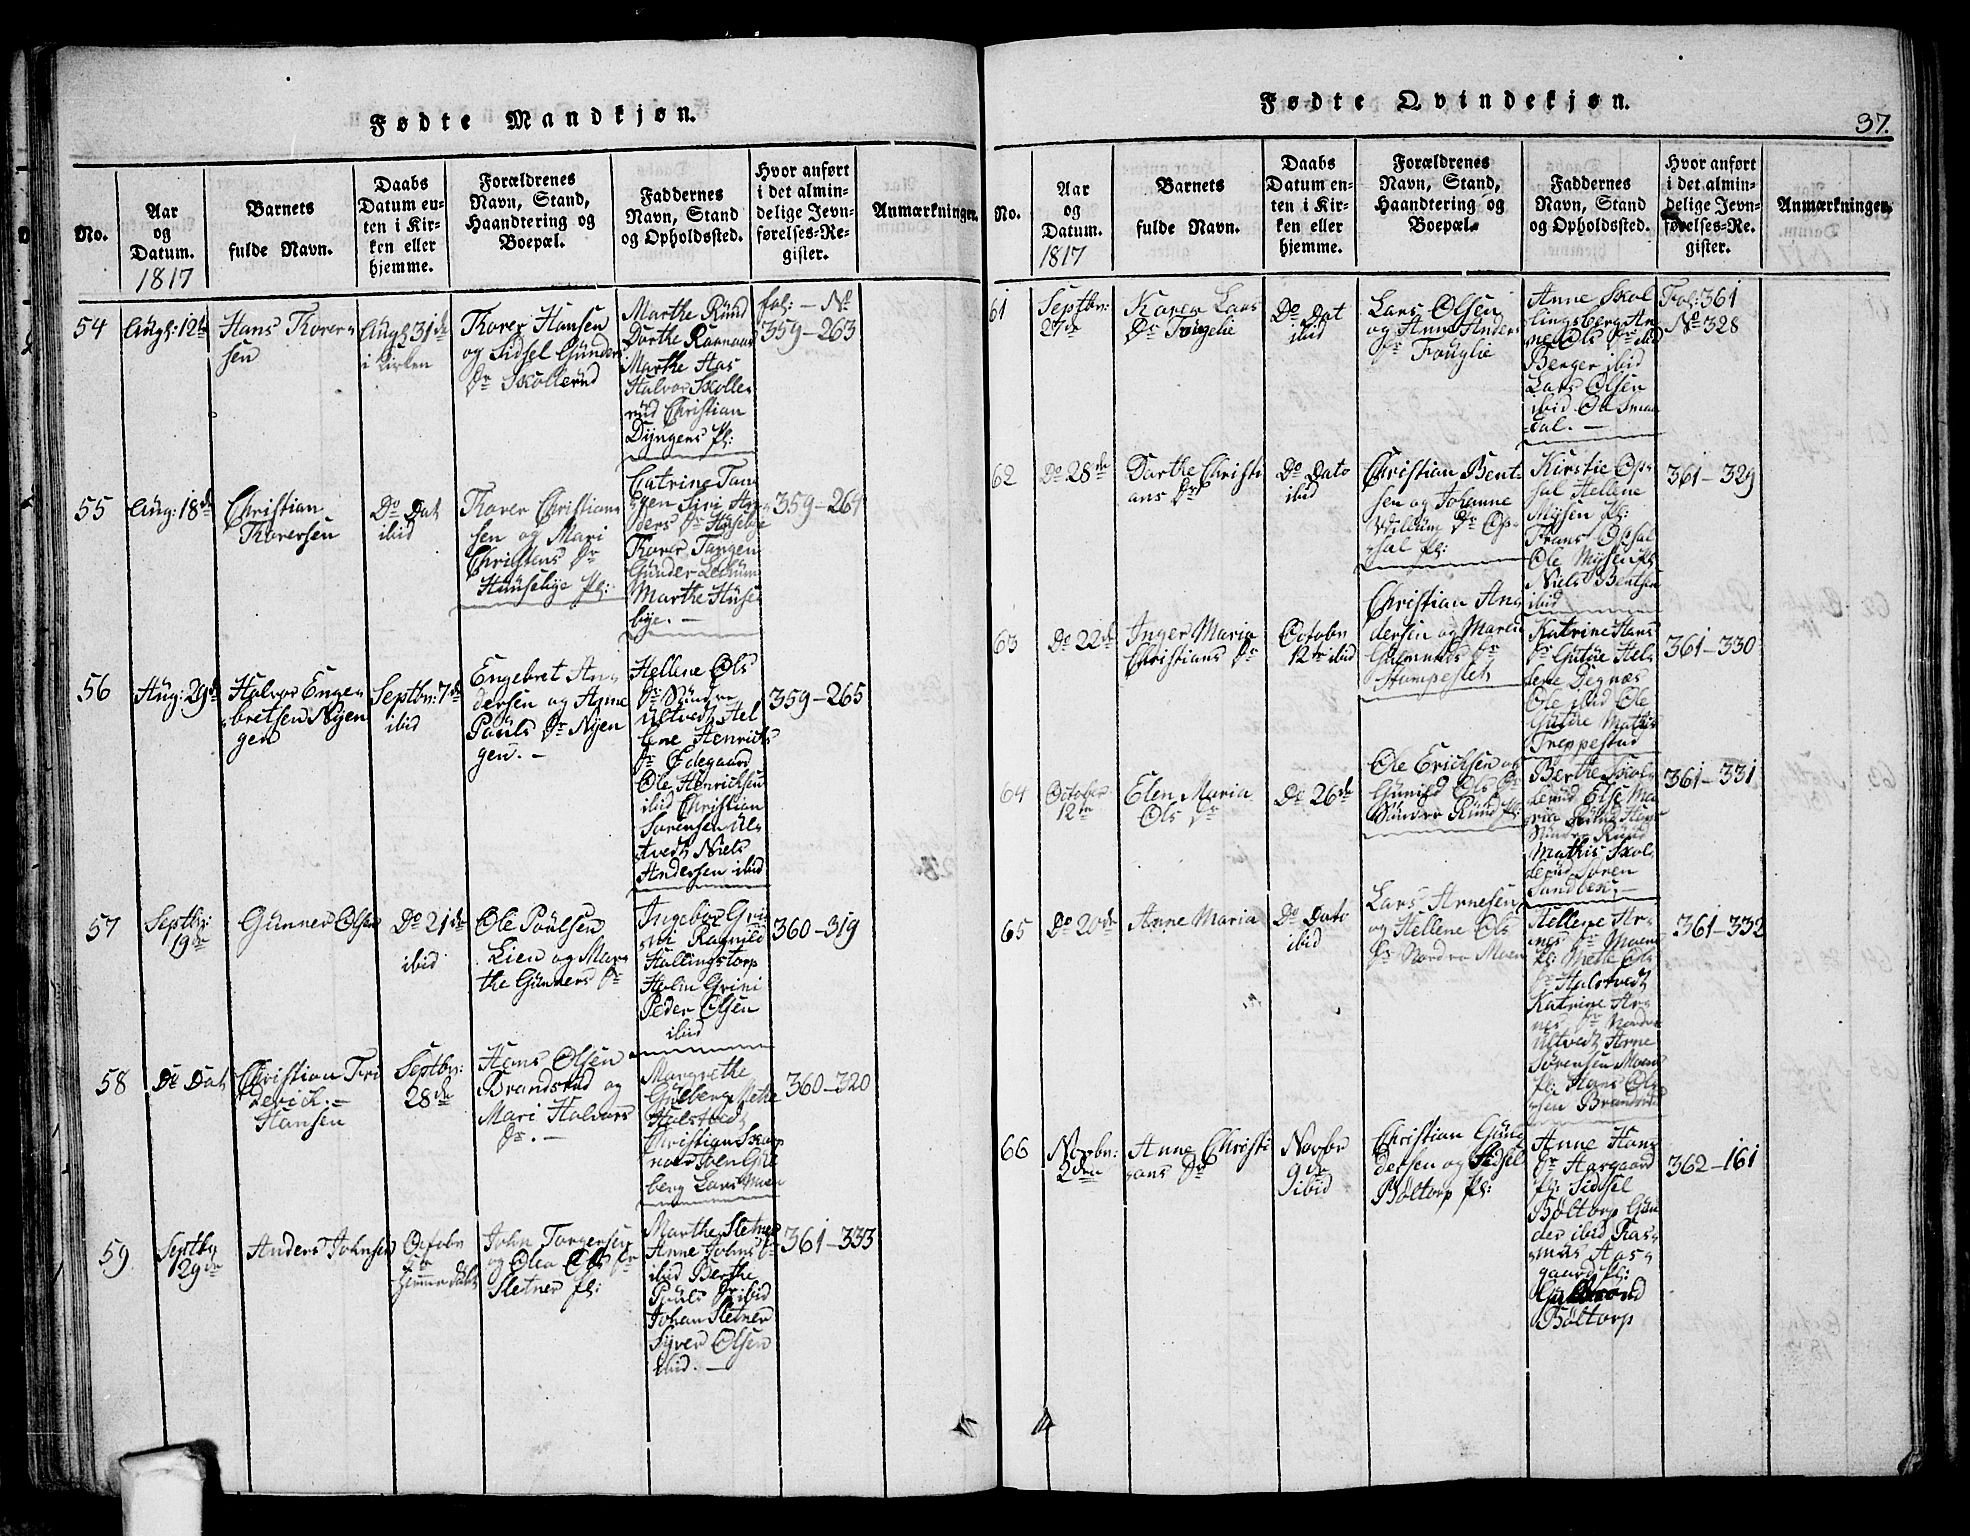 Fødte Mandkjøn.
No.
Aar
og
Datum.
1817
Barnets
fulde Navn.
Daabs
Datum en-
ten i Kir-
ken eller
hjemme.
Forældrenes
Navn, Stand,
Haandtering og
Boepæl.
Faddernes
Navn, Stand
og Opholdssted.
Hvor anført
i det almin-
delige Jevn-
førelses-Re-
gister.
Anmærkninger.
54
Augs: 12te
Hans Thorer-
sen
Augs 31te
i Kirken
Thorer Hansen
og Sidsel Gunders
Dr Skollerud
Marthe Ründ
Dorthe
Marthe Aas
Halvor Skolle-
rud Christian
Dyngens pl:
fol: - No
359-263
55
Aug: 18de
Christian
Thorersen
Do Dat
ibid
Thorer Christian-
sen og Mari
Christens Dr
pl:
Catrine Tan-
gen Siri An-
ders Dr Huseby
Thorer Tangen
Gunder
Marthe Huse-
bye. -
359-264
56
Aug: 29de
Halvor Enge-
bretsen Nyen
gen
Septbr: 7de
ibid
Engebret An-
dersen og Anne
Pauls Dr Nyen
gen. -
Hellene Ols
Dr Søndre
Ultvedt Hel
lene Henrichs
Dr Ødegaard
Ole Henrichsen
ibid Christian
Sørensen Ul-
tvedt Niels
Andersen ibid
359-265
57
Septbr:
19de
Gunner Olsen
Do 21de
ibid
Ole Poulsen
Lien og Mar-
the Gunners Dr
Ingebor Gri-
ni Ragnild
Hallingstorp
Holm Grini
Peder Olsen
ibid
360-319
58
Do Dat
Christian Fri
derich -
Hansen
Septbr:
28de
Hans Olsen
Brandsrud og
Mari Halvors
Dr. -
Margrethe
Gulberg Mette
Halstvedt
Christian Skarp
Iven Gul
berg Lars Moen
360-320
59
Septbr
29de
Anders Johnsen
Octobr
hjemme døbt
John Torgersen
og Olea Ols Dr
Sletner pl:
Marthe Sletner
Anne Johns Dr
ibid Berthe
Pouls Dr ibid
Johan Sletner
Syver Olsen
ibid. -
361-333
Fødte Qvindekjøn.
37.
No.
Aar
og
Datum.
1817
Barnets
fulde Navn.
Daabs
Datum en-
ten i Kir-
ken eller
hjemme.
Forældrenes
Navn, Stand,
Haandtering og
Boepæl.
Faddernes
Navn, Stand
og Opholdssted.
Hvor anført
i det almin-
delige Jevn-
førelses-Re-
gister.
Anmærkninger.
61
Septbr:
27de
Karen Lars
Dr Fouglie
Do Dat
ibid
Lars Olsen
og Anne Anders
Dr Fouglie
Anne Skol
lingsberg An
ne Ols Dr ibid
Berger ibid
Lars Olsen
ibid Ole Smaa
dal. -
Fol: 361
No 328
62
Do 28de
Dorthe Christi
ans Dr
Do Dato
ibid
Christian Bent-
sen og Johanne
Willum Dr Op-
sal pl:
Kirstie Op-
sal Hellene
Mysen pl:
Frans Opsal
Ole Mysen pl:
Niels Bentsen
ibid
361-329
63
Do 22de
Inger Maria
Christians Dr
Octobr
12te ibid
Christian An-
dersen og Maren
Gulmunds Dr
Katrine Hans
Dr Gutue Hel-
lene Tegnæs
Ole ibid Ole
Gutue Mathis
Treppestad
361-330
64
October
12te
Elen Maria
Ols Dr
Do 26de
Ole Erichsen og
Gunild Ols Dr
Søndre Rund pl:
Berthe Skol-
lerud Else Ma-
ria
Søndre Rund
Mathis Skol-
lerud Søren
Sandbek. -
361-331
65
Do 20de
Anne Maria
Do Dato
ibid
Lars Arnesen
og Hellene Ols
Dr Nordre Moen
Hellene Ar-
nes Dr Moen
pl: Mette Ols
Dr Halstvedt
Katrine Ar-
nes Dr Nordre
Ultvedt Arne
Sørensen Moen
pl: Hans Ol-
sen Brandsrud
361-332
66
Novbr:
2den
Anne Christi
ans Dr
Novbr
9de
ibid
Christian Gun-
dersen og Sidsel
Bøltorp pl:
Anne Hans
Dr Aasgaard
pl: Sidsel
Bøltorp Gun-
der ibid Ras-
mus Aas-
gaard pl:
Bøltorp
362-161